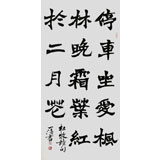 停車坐愛楓
林晚霜葉紅
於二月花
杜牧詩句